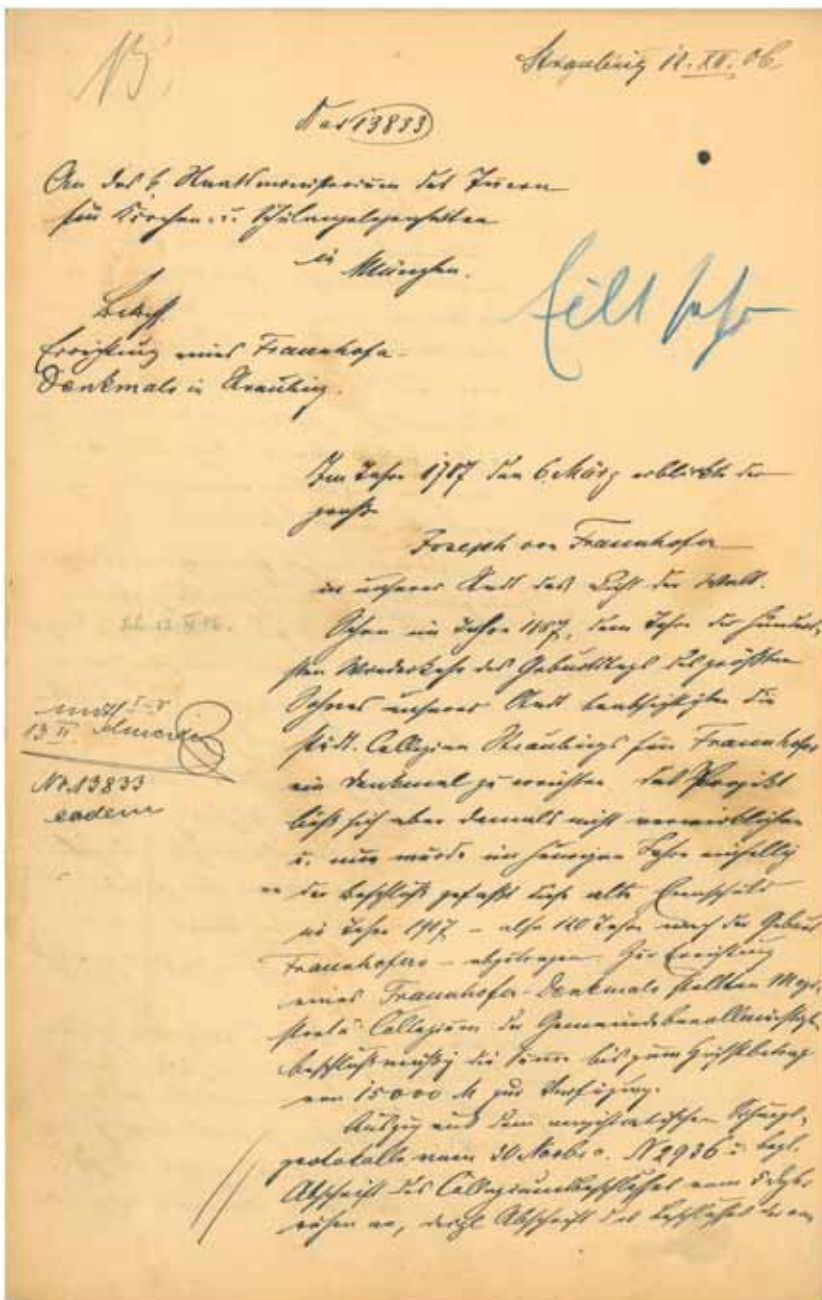 Straubing 12. XII. 06.
No 13833
An das k Staatsministerium des Innern
für Kirchen- u. Schulangelegenheiten
in München.
Eilt sehr
Betreff
Errichtung eines Fraunhofer-
Denkmals in Straubing.
Im Jahre 1787 den 6. März erblickte der
große
Joseph von Fraunhofer
in unserer Stadt das Licht der Welt.
Schon im Jahre 1887, dem Jahre der hundert-
sten Wiederkehr des Geburtstags des größten
Sohnes unserer Stadt beabsichtigten die
städt. Collegien Straubings für Fraunhofer
ein Denkmal zu errichten. Das Projekt
ließ sich aber damals nicht verwirklichen
u. nun wurde im heurigen Jahre einhellig
der Beschluß gefaßt diese alte Ehrenschuld
im Jahre 1907 – also 120 Jahre nach der Geburt
Fraunhofers – abzutragen. Zur Errichtung
eines Fraunhofer-Denkmals stellten Magi-
strat u. Collegium der Gemeindebevollmächtigt.
beschlußmäßig die Summe bis zum Höchstbetrag
von 15000 M zur Verfügung.
Auszug aus dem magistratischen Sitzungs-
protokolle vom 30 Novbr. N 2936 u. begl.
Abschrift des Collegiumsbeschlusses vom 5 Dezbr
ruhen an, desgl. Abschrift des Beschlusses
13 II.
No. 13833
eodem